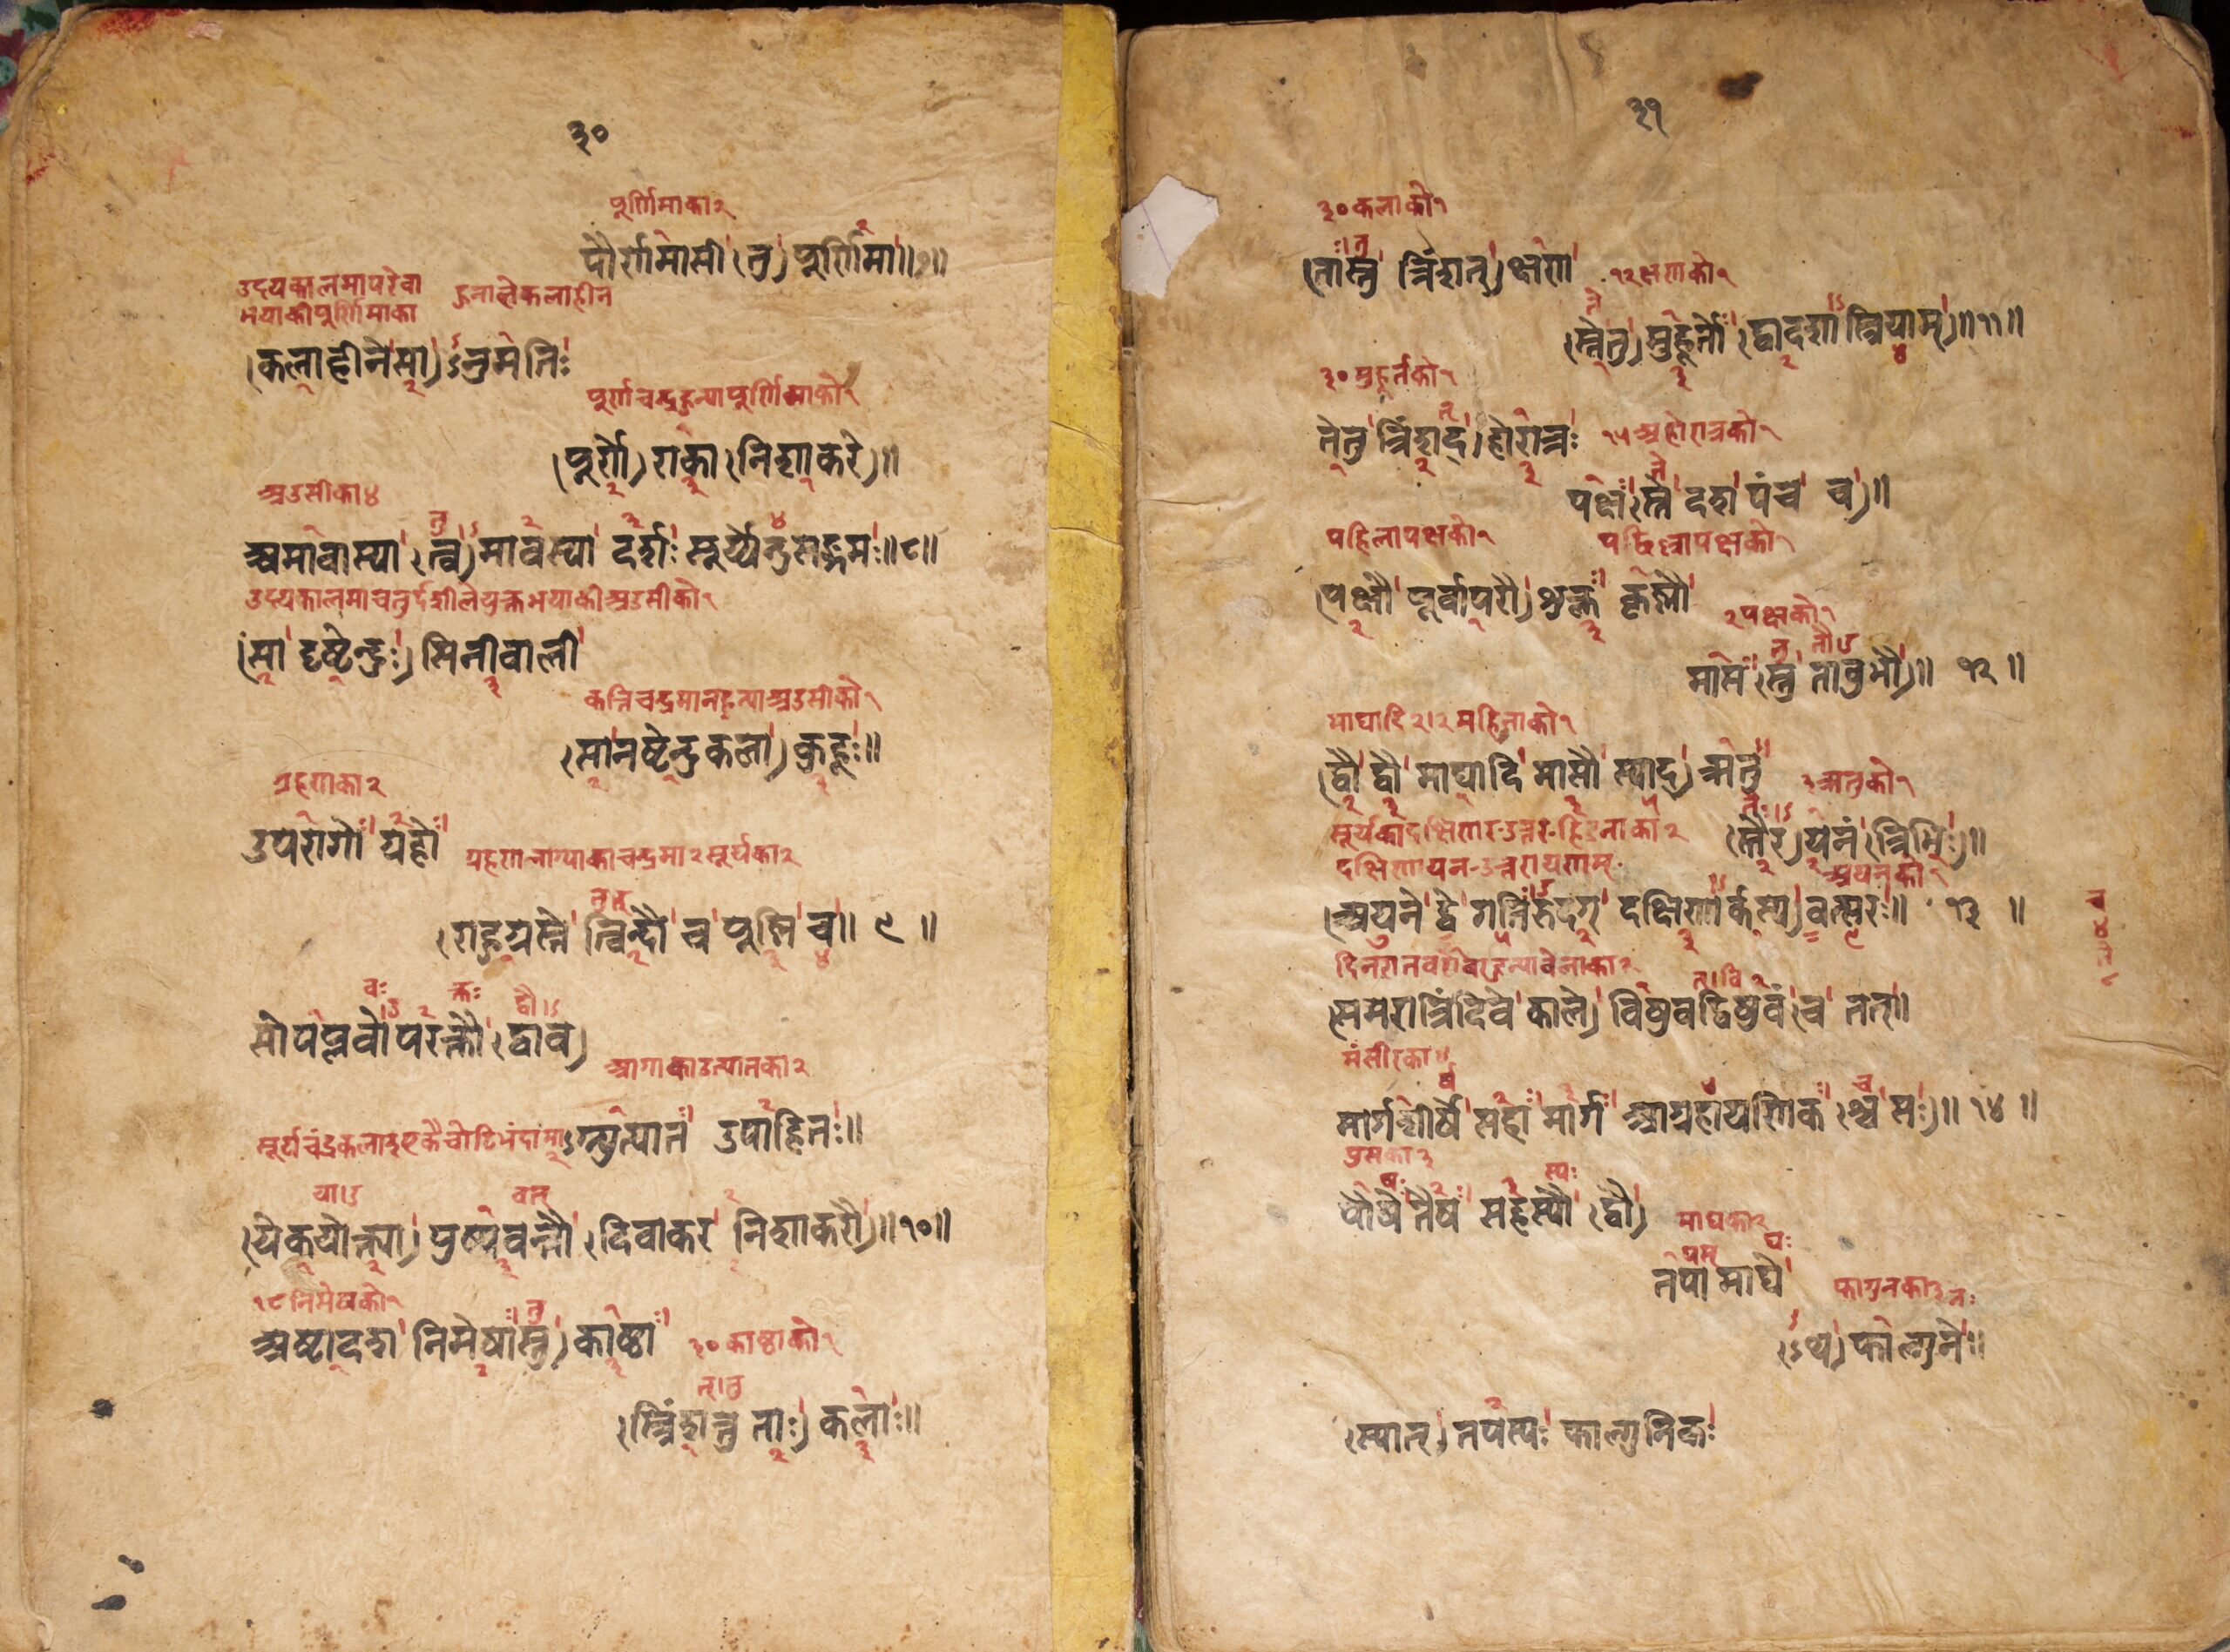 ३०
पूर्णिमाका२
पौर्णमासी (तु) पूर्णिमा॥७॥
उदयकालमापरेवा
भयाकीपूर्णिमाका
हुनालेकलाहीन
(कलाहीने सा)ऽनुमतिः
पूर्णचन्द्रहुन्यापूर्णिमाको१
(पूर्णे) राका (निशाकरे)॥
अउसीका४
अमावास्या (त्व)मावस्या दर्शः सूर्य्येन्दुसङ्गमः॥८॥
उदयकालमाचतुर्दशीलेयुक्तभयाकीअउसीको१
(सा दृष्टेन्दुः) सिनीवाली
कत्तिचन्द्रमानहुन्याअउसीको१
(सा नष्टेन्दुकला) कुहूः॥
ग्रहणका२
उपरागो ग्रहो
ग्रहणलाग्याकाचन्द्रमा२सूर्यका२
(राहुग्रस्ते त्विन्दौ च पूष्णि च॥ ९ ॥
सोपप्लवोपरक्तौ (द्वाव)
आगाकाउत्पातका२
सूर्यचंद्रकला
ऽग्न्युत्पात उपाहितः॥
(येकयोक्त्या) पुष्पवन्तौ (दिवाकर निशाकरौ)॥१०॥
१८निमेषको१
अष्टादश निमेषास्तु) काष्ठा
३०काष्ठाको१
(स्त्रिंशत्तु ताः) कलाः॥
३१
३०कलाको१
(तास्तु त्रिंशत्) क्षण
१२क्षणको१
(स्ते तु) मुहूर्तो (द्वादशास्त्रियाम्)॥११॥
३०मुहूर्तको१
ते तु त्रिंशद)होरात्रः
१५अहोरात्रको१
पक्ष (स्ते दश पंच च)॥
पहिलापक्षको१
पछिल्लापक्षको१
(पक्षौ पूर्वापरौ) शुक्ल कृष्णौ
२पक्षको१
मास (स्तु तावुभौ)॥ १२ ॥
माघादि२।२महिनाको१
(द्वौ द्वौ माघादि मासौ स्याद्) ऋतु
३ऋतुको१
(स्तैर)यनं (त्रिभिः)॥
सूर्यकादक्षिणर-उत्तर-हिडनाका२
दक्षिणायन-उत्तरायणम्
२अयनको१
(अयने द्वे गतिरुदग् दक्षिणार्कस्य) वत्सरः॥ १३ ॥
दिनरातबराबरहुन्याबेलाका२
(समरात्रिंदिवे काले) विषुवद्विषुवं (च तत्)॥
मंसीरका४
मार्गशीर्षे सहा मार्ग आग्रहायणिक (श्च सः)॥ १४ ॥
पुसका३
पौषे तैष सहस्यौ (द्वौ)
माघका२
तपा माघे
फागुनका३
(ऽथ) फाल्गुने॥
(स्यात्) तपस्यः फाल्गुनिकः